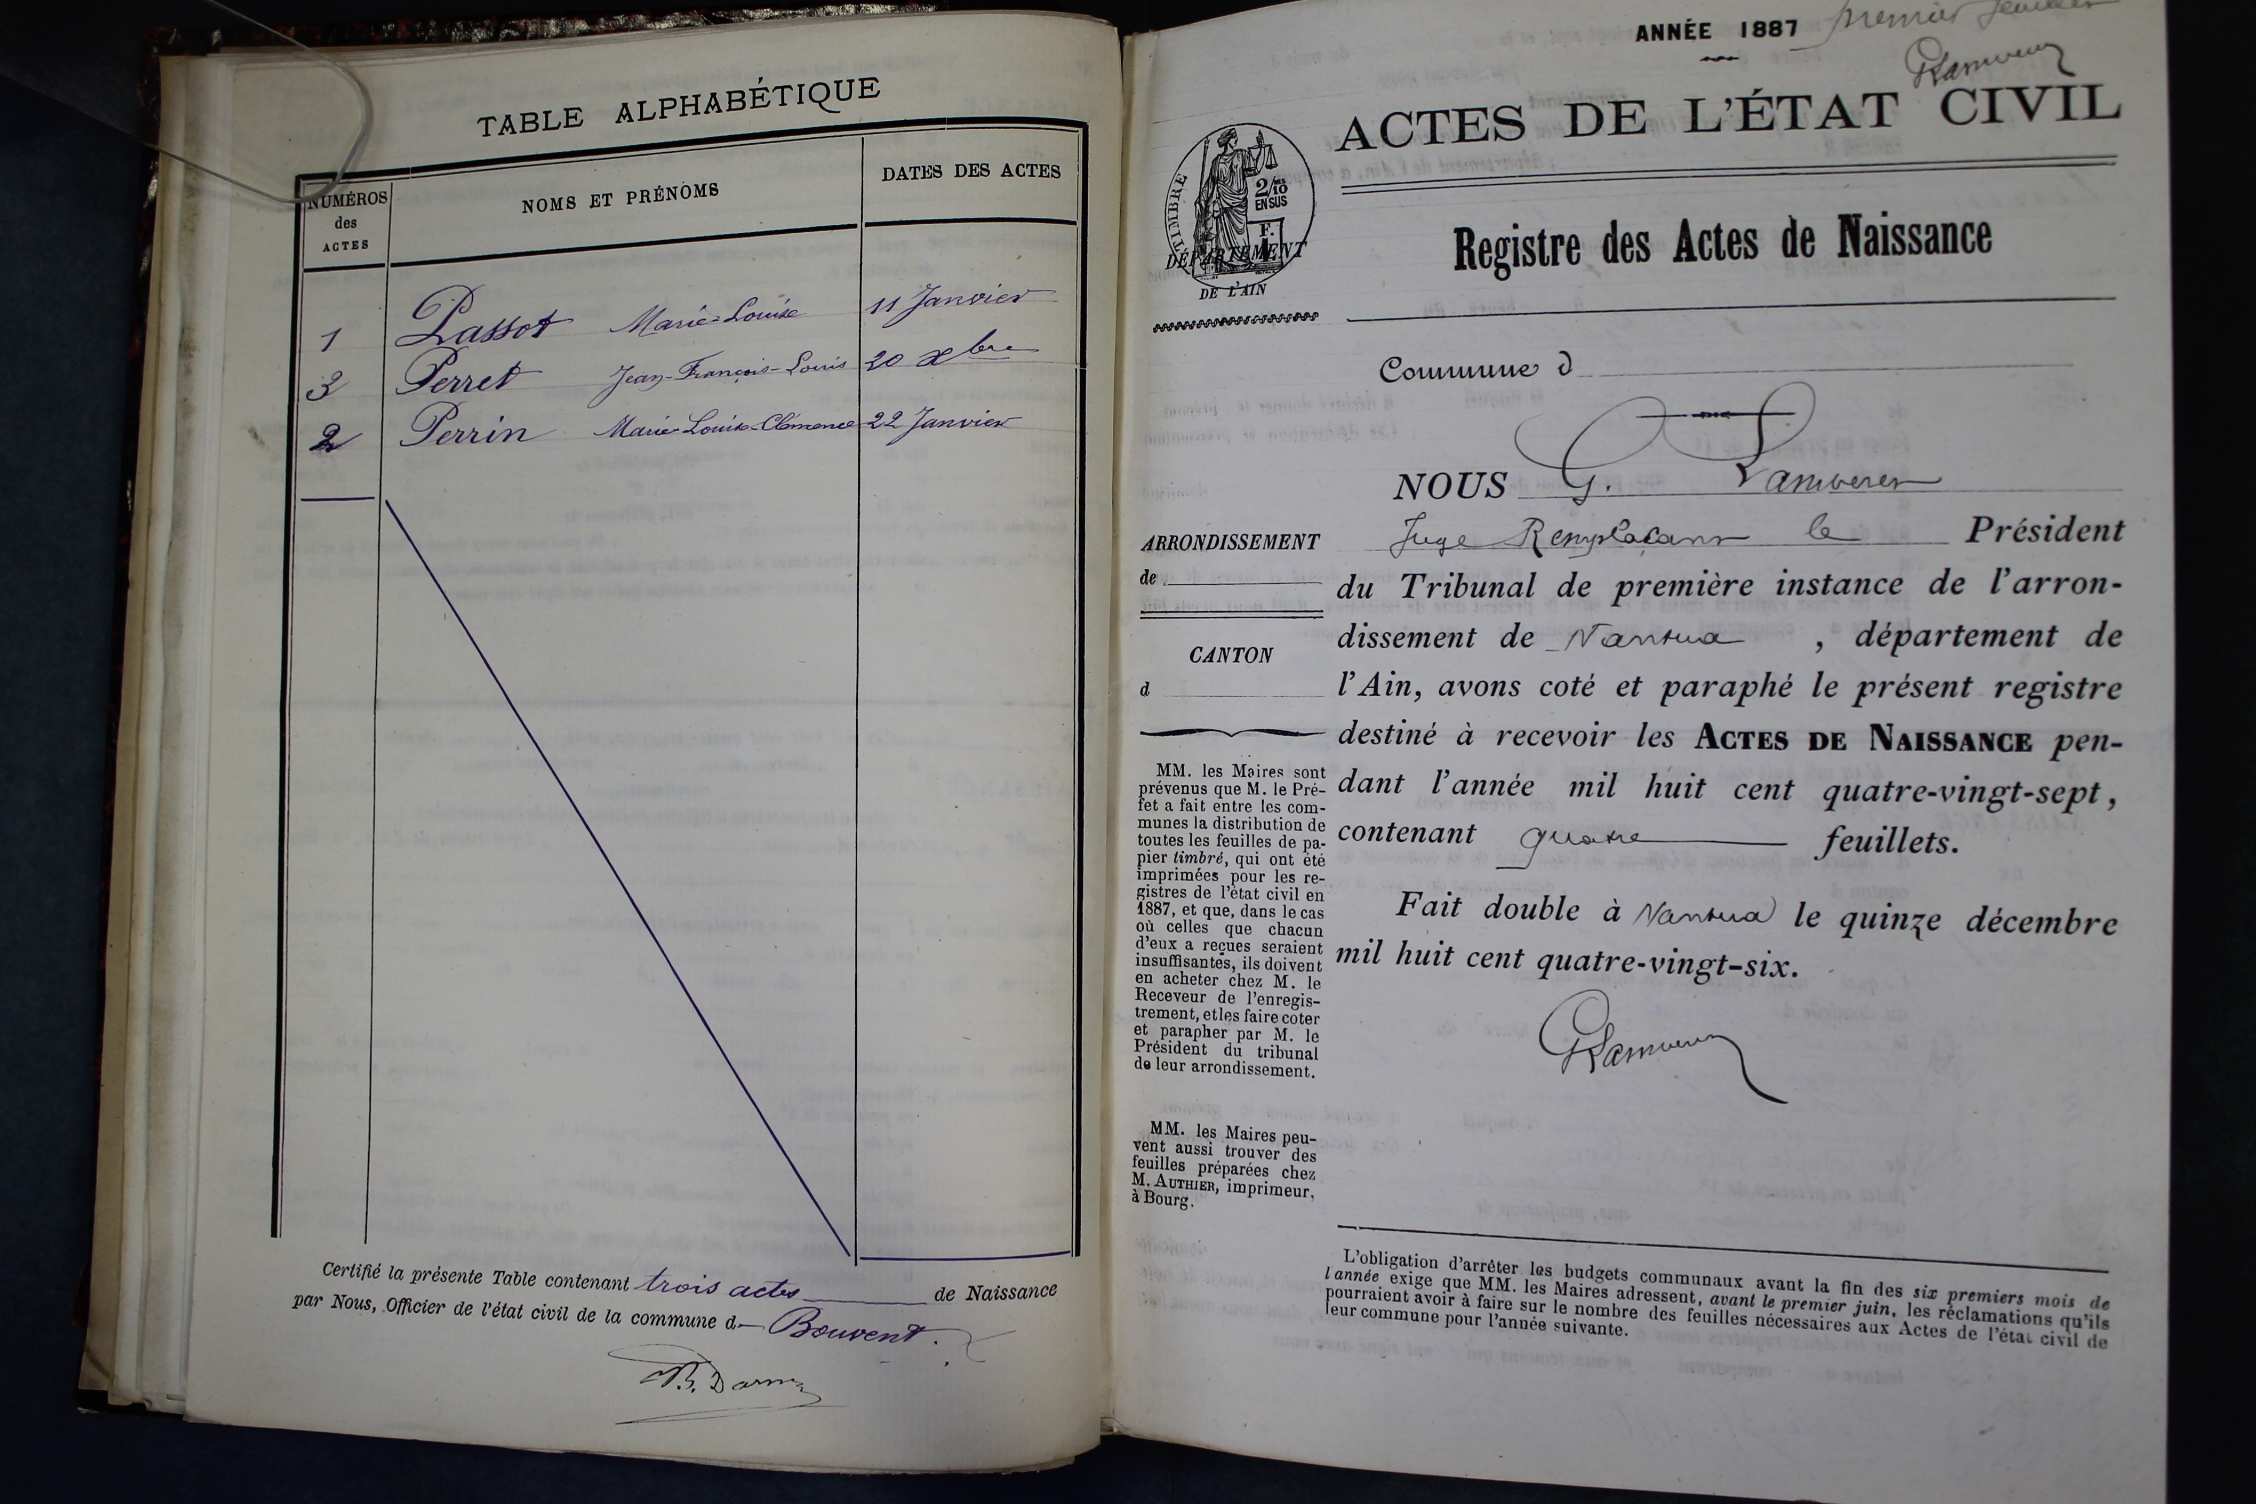 TABLE ALPHABÉTIQUE
NUMÉROS
des
ACTES
NOMS ET PRÉNOMS
DATES DES ACTES
1 Passot Marie-Louise 11 Janvier
3 Perret Jean-François-Louis 20 Xbre
2 Perrin Marie-Louise-Clémence 22 Janvier
Certifié la présente Table contenant trois actes de Naissance
par Nous, Officier de l'état civil de la commune d Bouvent.
ANNÉE 1887 premier feuillet
ACTES DE L'ÉTAT CIVIL
TIMBRE
2/10
EN SUS
F.
DÉPARTEMENT
DE L'AIN
Registre des Actes de Naissance
Commune d
NOUS G.
Juge Remplaçant le Président
du Tribunal de première instance de l'arron-
dissement de Nantua , département de
l'Ain, avons coté et paraphé le présent registre
destiné à recevoir les ACTES DE NAISSANCE pen-
dant l'année mil huit cent quatre-vingt-sept,
contenant quatre feuillets.
Fait double à Nantua le quinze décembre
mil huit cent quatre-vingt-six.
ARRONDISSEMENT
de
CANTON
d
MM. les Maires sont
prévenus que M. le Pré-
fet a fait entre les com-
munes la distribution de
toutes les feuilles de pa-
pier timbré, qui ont été
imprimées pour les re-
gistres de l'état civil en
1887, et que, dans le cas
où celles que chacun
d'eux a reçues seraient
insuffisantes, ils doivent
en acheter chez M. le
Receveur de l'enregis-
trement, et les faire coter
et parapher par M. le
Président du tribunal
de leur arrondissement.
MM. les Maires peu-
vent aussi trouver des
feuilles préparées chez
M. AUTHIER, imprimeur,
à Bourg.
L'obligation d'arrêter les budgets communaux avant la fin des six premiers mois de
l'année exige que MM. les Maires adressent, avant le premier juin, les réclamations qu'ils
pourraient avoir à faire sur le nombre des feuilles nécessaires aux Actes de l'état civil de
leur commune pour l'année suivante.